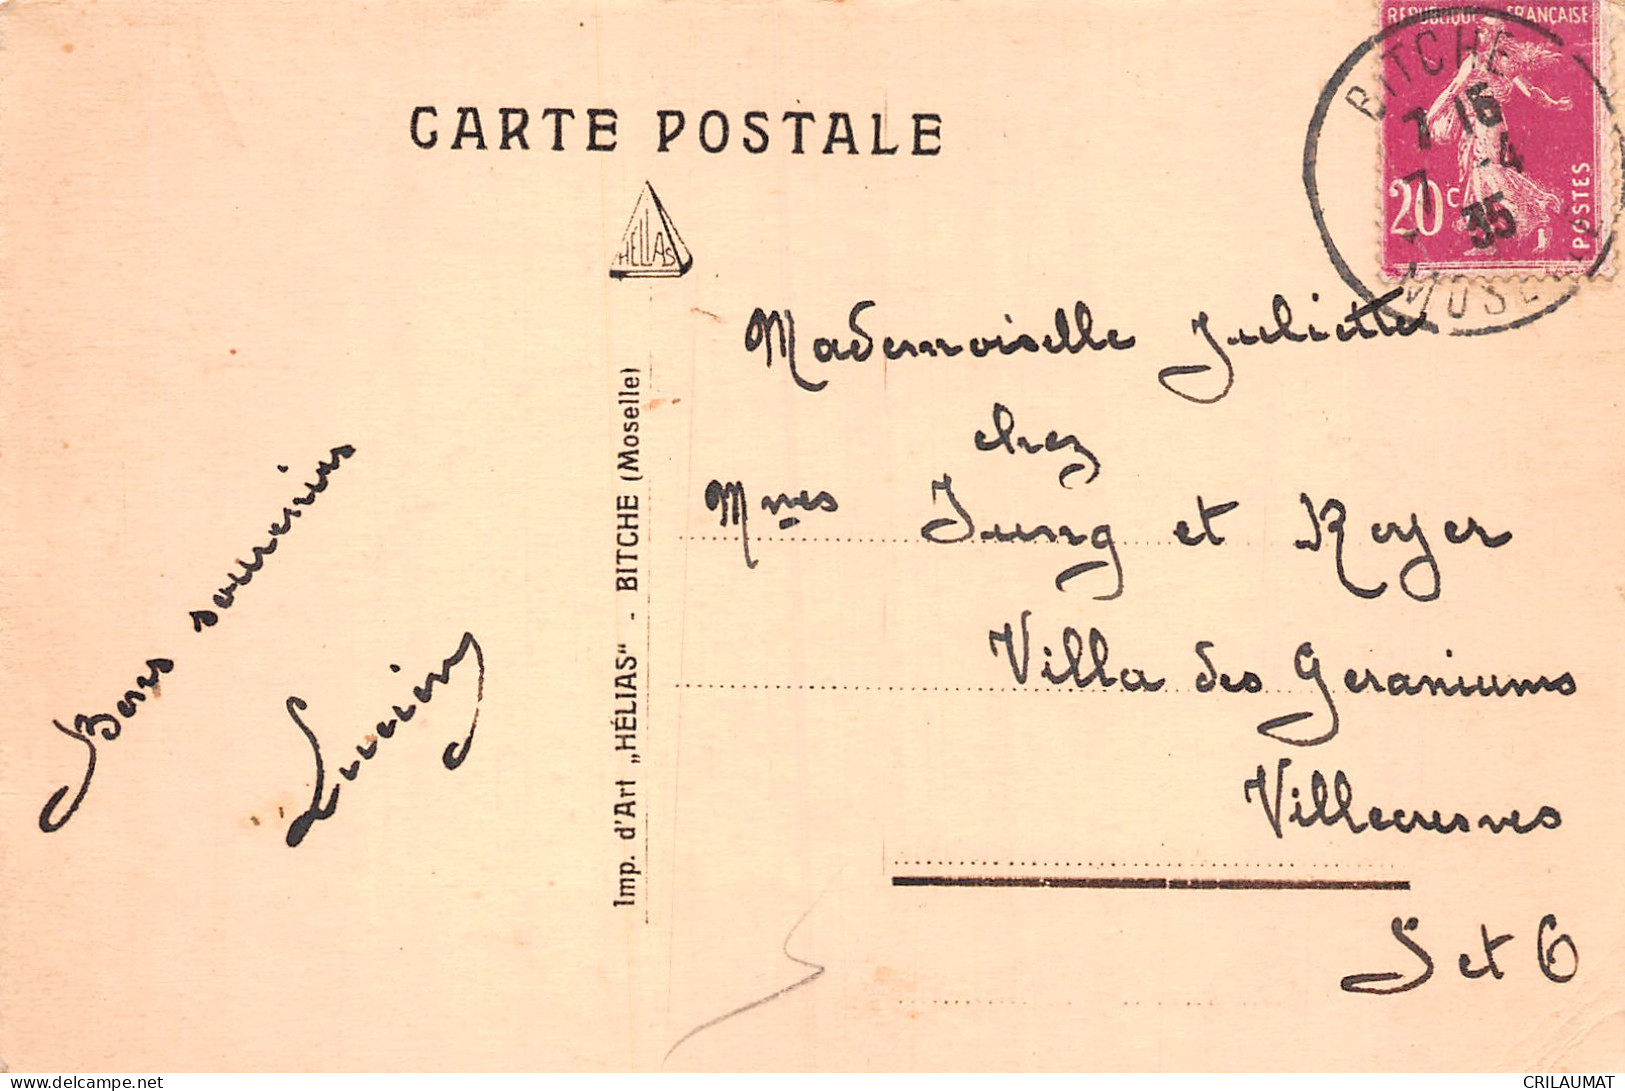 CARTE POSTALE
HÉLIAS
RÉPUBLIQUE FRANÇAISE
20c
POSTES
BITCHE
7 15
7 -4
35
MOSELLE
Mademoiselle Juliette
chez
Mmes Jung et Royer
Villa des Geraniums
Villecresnes
S et O
Bons souvenirs
Lucien
Imp. d'Art „HÉLIAS“ - BITCHE (Moselle)
delcampe.net
CRILAUMAT